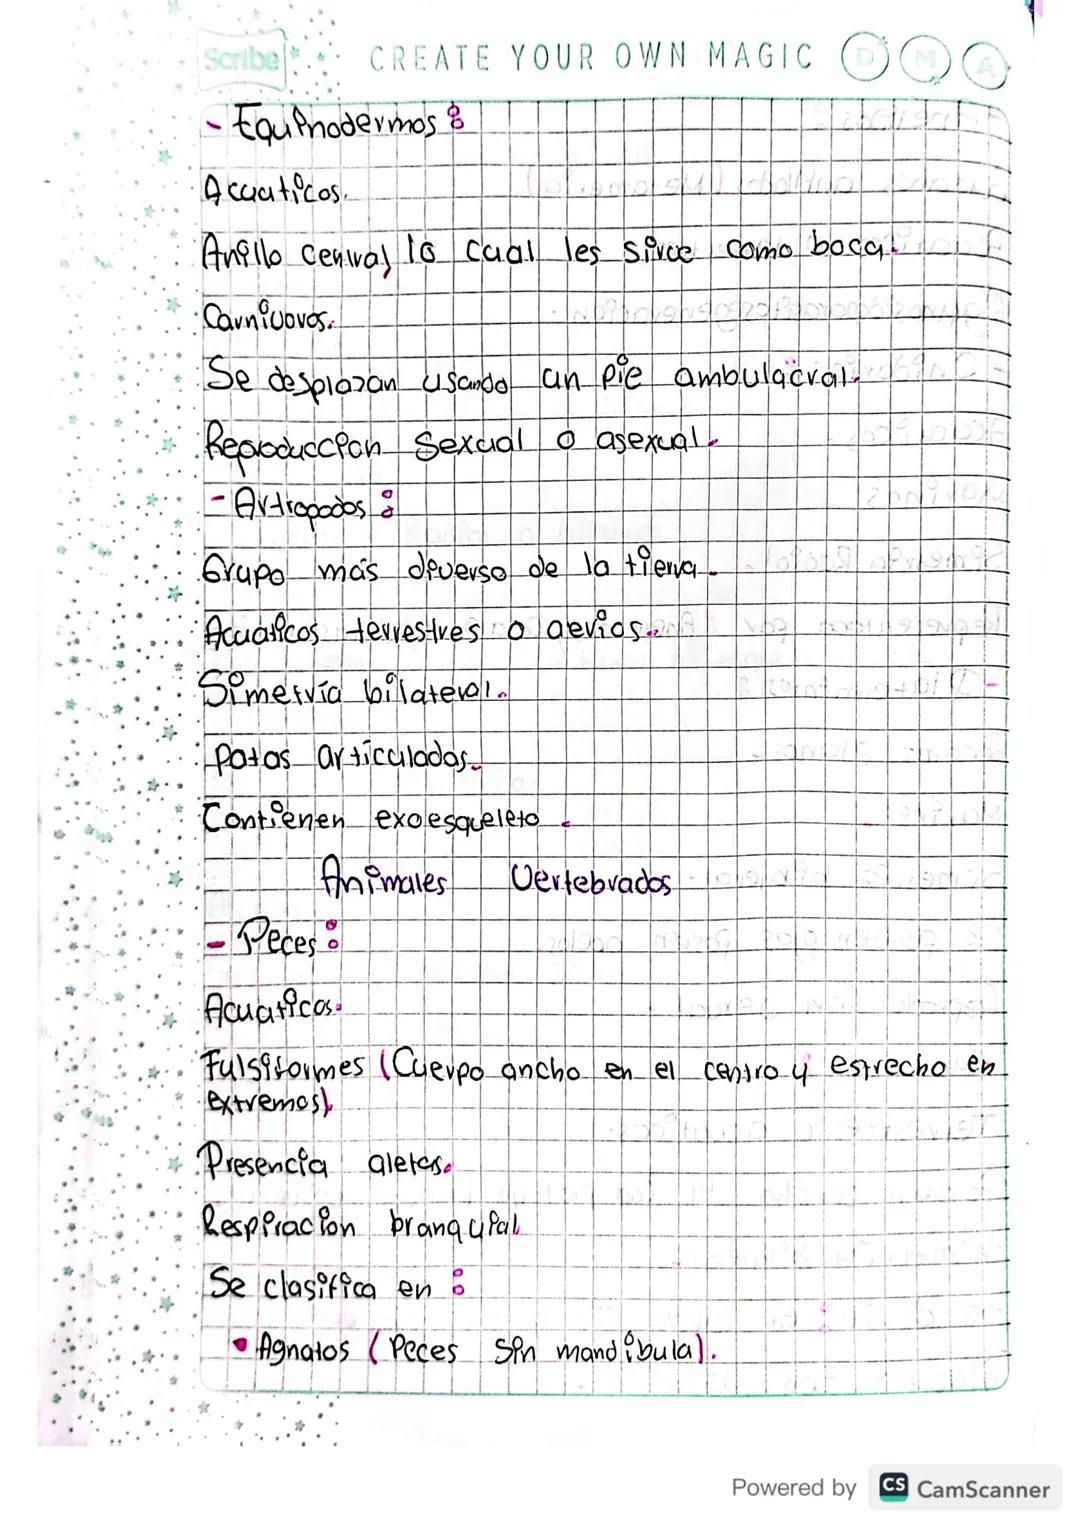 Scribe CREATE YOUR OWN MAGIC D M A
- Equinodermos:
Acuaticos.
Anillo Cenral lo cual les sirve como boca.
Carnivoros.
Se desplazan usando un pie ambulacral.
Reproduccion Sexual o asexual.
- Artropodos:
Grupo más diverso de la tierra.
Acuaticos terrestres o aerios.
Simetría bilateral.
Patas articuladas.
Contienen exoesqueleto.
Animales Vertebrados
- Peces:
Acuaticos.
Fulsiformes (Cuerpo ancho en el centro y estrecho en
extremos).
Presencia aletas.
Respiracion branquial
Se clasifica en:
• Agnatos (Peces Sin mandibula).
Powered by CS CamScanner